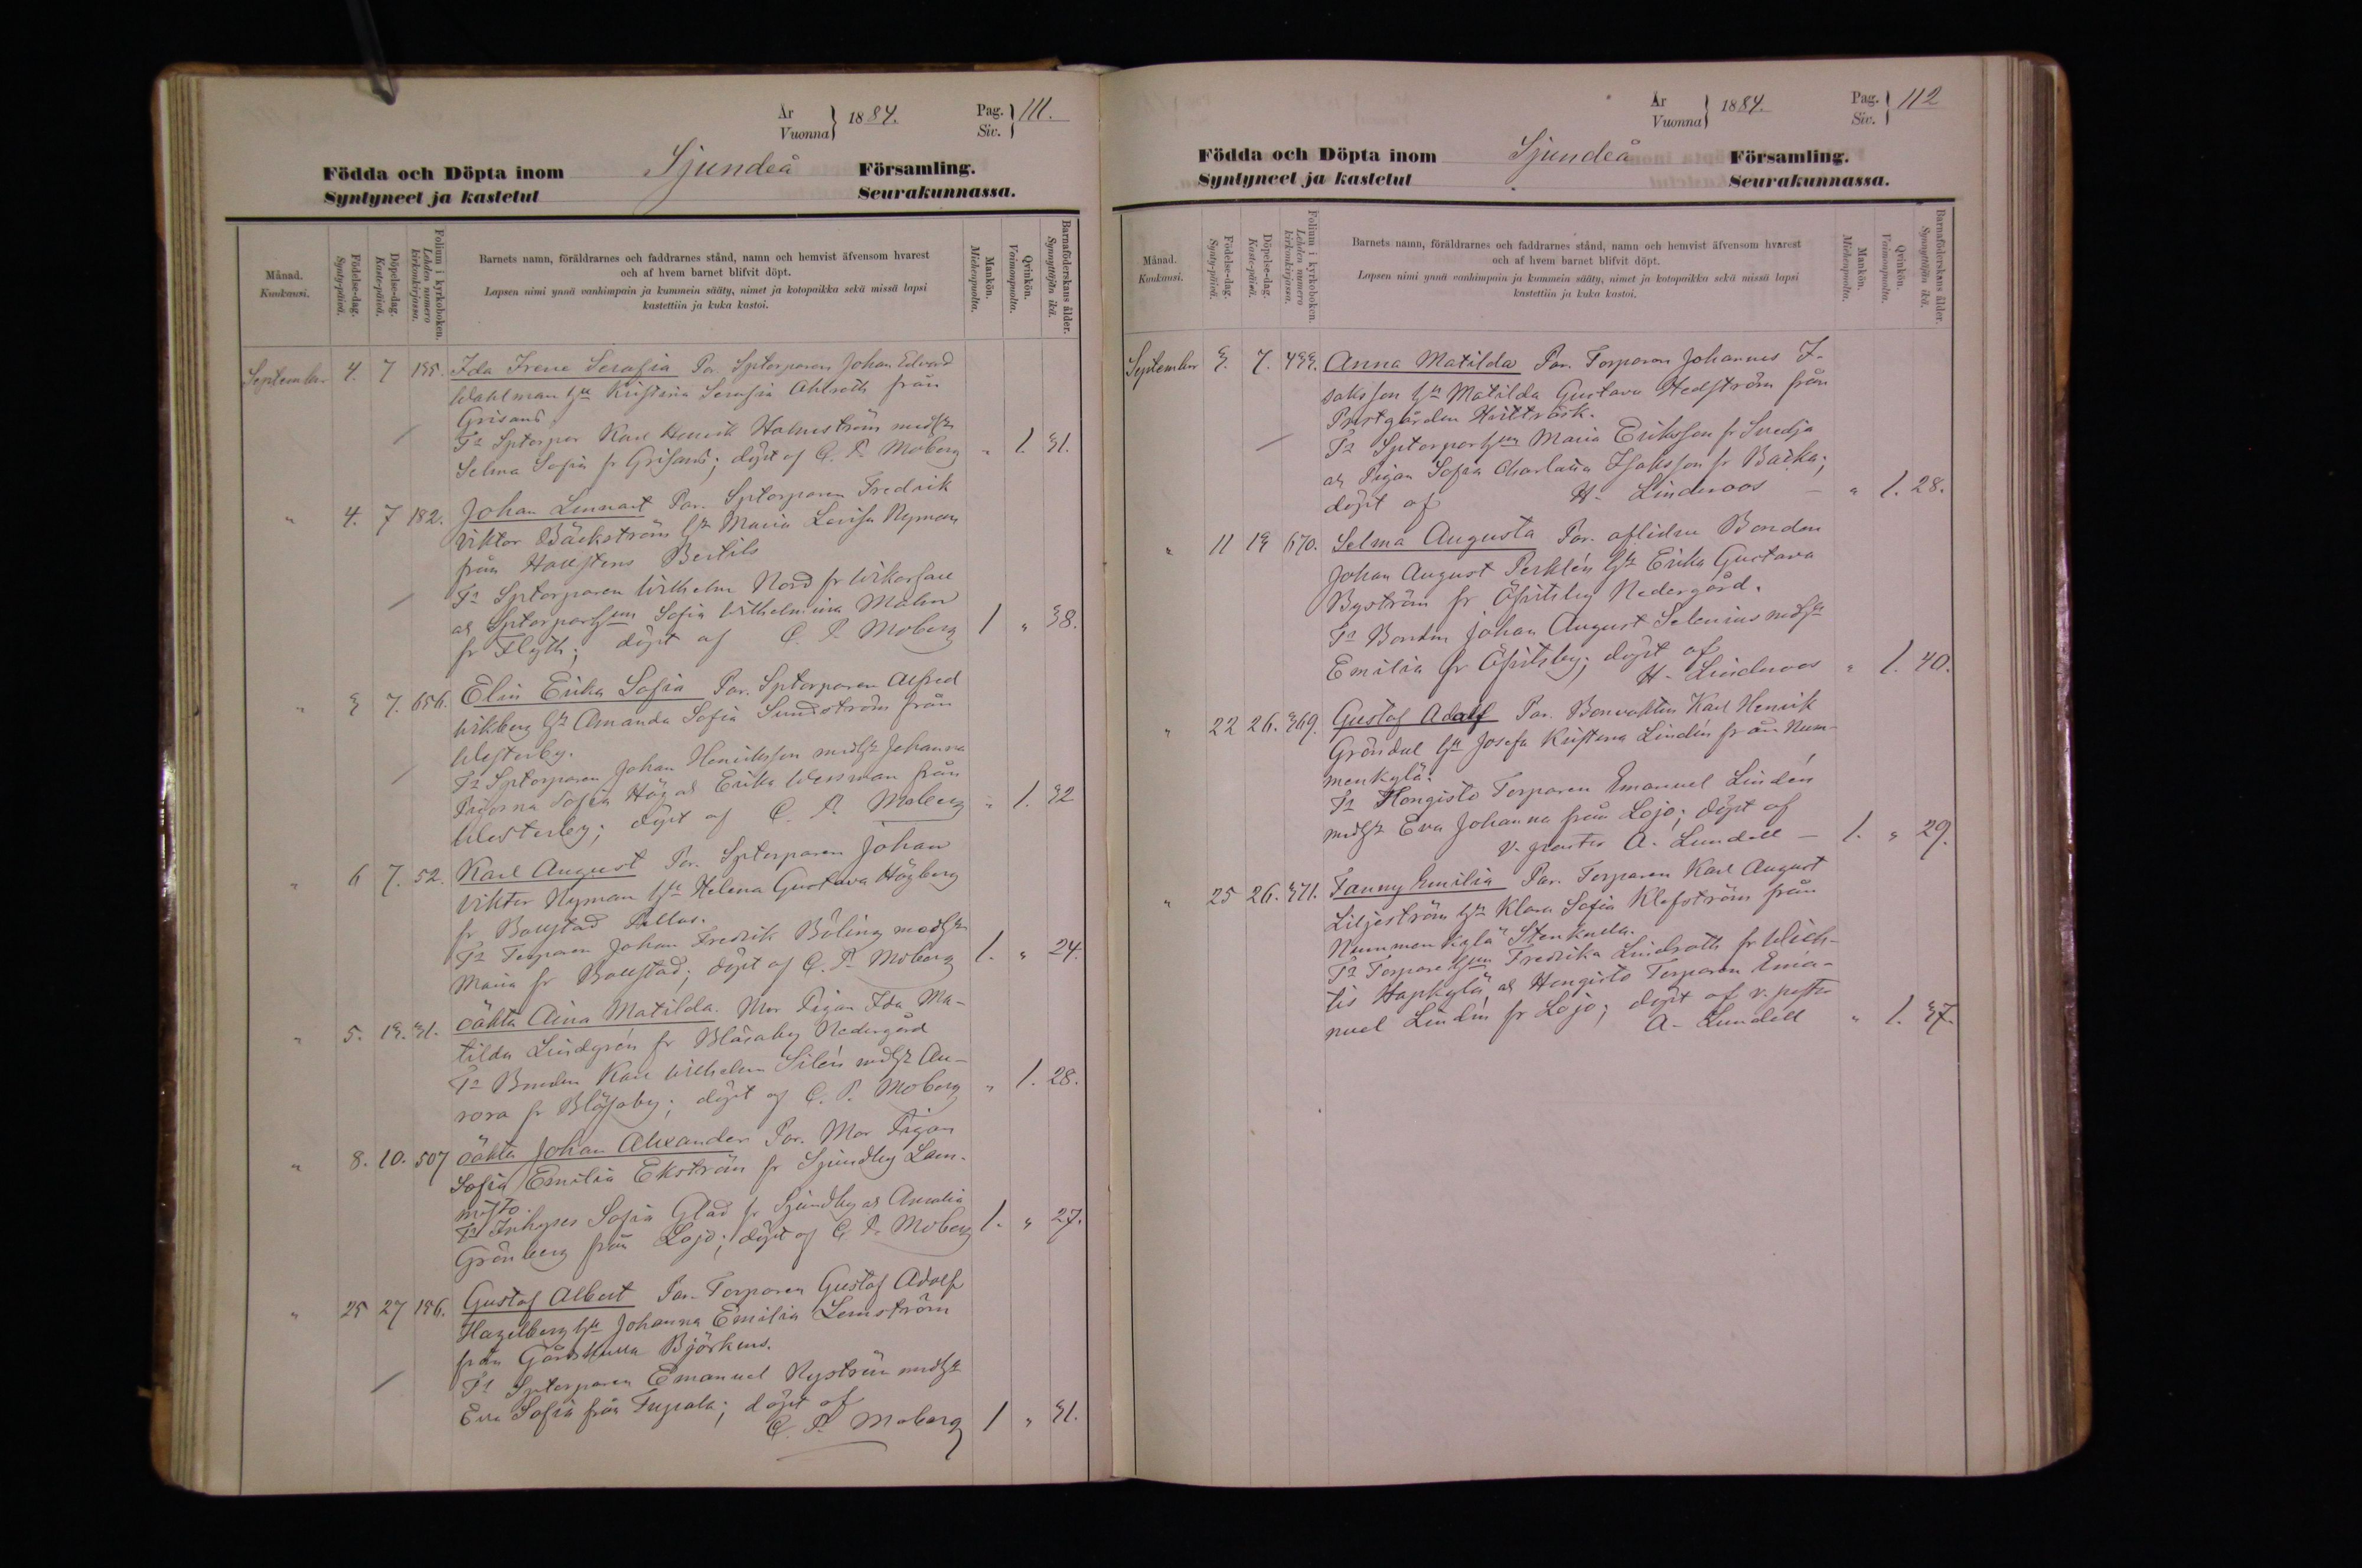 År
Vuonna } 1884. Pag.
Siv. } 111.
Födda och Döpta inom Sjundeå Församling.
Syntyneet ja kastetut Seurakunnassa.
Månad.
Kuukausi.
Födelse-dag.
Synty-päivä.
Döpelse-dag.
Kaste-päivä.
Folium i kyrkoboken.
Lehden numero kirkonkirjassa.
Barnets namn, föräldrarnes och faddrarnes stånd, namn och hemvist äfvensom hvarest
och af hvem barnet blifvit döpt.
Lapsen nimi ynnä vanhimpain ja kummein sääty, nimet ja kotopaikka sekä missä lapsi
kastettiin ja kuka kastoi.
Mankön.
Miehenpuolta.
Qvinkön.
Vaimonpuolta.
Barnaföderskans ålder.
Synnyttäjän ikä.
September 4. 7 195. Ida Irene Serafia Par. Sptorparen Johan Edvard
Wahlman hu Kristina Serafia Ahlroth från
Grisans
Fr Sptorpar Karl Henrik Holmström med hu
Selma Sofia fr Grisans; döpt af C. P. Moberg " 1. 31.
" 4. 7 182. Johan Lennart Par. Sptorparen Fredrik
Viktor Bäckström hu Maria Lovisa Nyman
från Bertils
Fr Sptorparen Wilhelm Nord fr
Sptorparhun Sofia Wilhelmina Malm
fr Flyth; döpt af C. P. Moberg 1 " 38.
" 3 7. 656. Elin Erika Sofia Par. Sptorparen Alfred
Wikberg hu Amanda Sofia Sundström från
Westerby.
Fr Sptorparen Johan Henriksson med hu Johanna
Pigorna Sofia Hög Erika Wessman från
Westerby; döpt af C. P. Moberg " 1. 32
" 6 7. 52. Karl August Par. Sptorparen Johan
Viktor Nyman hu Helena Gustava Högberg
fr Bollstad
Fr Torparen Johan Fredrik Böling med hu
Maria fr Bollstad; döpt af C. P. Moberg 1. " 24.
" 5. 13. 31. oäkta Aina Matilda. Mor Pigan Ida Ma-
tilda Lindgrén fr Blåsaby Nedergård
Fr Bonden Karl Wilhelm Silén med hu Au-
rora fr Blåsaby; döpt af C. P. Moberg " 1. 28.
" 8. 10. 507 oäkta Johan Alexander Par. Mor Pigan
Sofia Emilia Ekström fr Sjundby Lam-
misto.
Fr Inhyses Sofia Glad fr Sjundby Amalia
Grönberg från Lojo; döpt af C. P. Moberg 1. " 27.
" 25 27 196. Gustaf Albert Par. Torparen Gustaf Adolf
Hagelberg hu Johanna Emilia Lemström
från Gårdskulla Björkens.
Fr Sptorparen Emanuel Nyström med hu
Eva Sofia från; döpt af
C. P. Moberg 1 " 31.
År
Vuonna } 1884. Pag.
Siv. } 112
Födda och Döpta inom Sjundeå Församling.
Syntyneet ja kastetut Seurakunnassa.
Månad.
Kuukausi.
Födelse-dag.
Synty-päivä.
Döpelse-dag.
Kaste-päivä.
Folium i kyrkoboken.
Lehden numero kirkonkirjassa.
Barnets namn, föräldrarnes och faddrarnes stånd, namn och hemvist äfvensom hvarest
och af hvem barnet blifvit döpt.
Lapsen nimi ynnä vanhimpain ja kummein sääty, nimet ja kotopaikka sekä missä lapsi
kastettiin ja kuka kastoi.
Mankön.
Miehenpuolta.
Qvinkön.
Vaimonpuolta.
Barnaföderskans ålder.
Synnyttäjän ikä.
September 3. 7. 433. Anna Matilda Par. Torparen Johannes I-
saksson hu Matilda Gustava Hedström från
Prestgården Hvitträsk.
Fr Sptorparhun Maria Eriksson fr Svedja
Pigan Sofia Charlotta Isaksson fr Backa;
döpt af H. Linderoos – " 1. 28.
" 11 13 670. Selma Augusta Par. aflidne Bonden
Johan August Perklén hu Erika Gustava
Byström fr Öfvitsby Nedergård.
Fr Bonden Johan August Selenius med hu
Emilia fr Öfvitsby; döpt af
H. Linderoos " 1. 40.
" 22 26. 369. Gustaf Adolf Par. Banvakten Karl Henrik
Gröndal hu Josefa Kristina Lindén från Num-
menkylä.
Fr Hongisto Torparen Emanuel Lindén
med hu Eva Johanna från Lojo; döpt af
v. pastor A. Lundell – 1. " 29.
" 25 26. 371. Fanny Emilia Par. Torparen Karl August
Liljeström hu Klara Sofia Klefström från
Nummenkylä Stenkulla.
Fr Torparehun Fredrika Lindroth fr Wich-
tis Hapkylä Hongisto Torparen Ema-
nuel Lindén fr Lojo; döpt af v. pastor
A. Lundell " 1. 37.